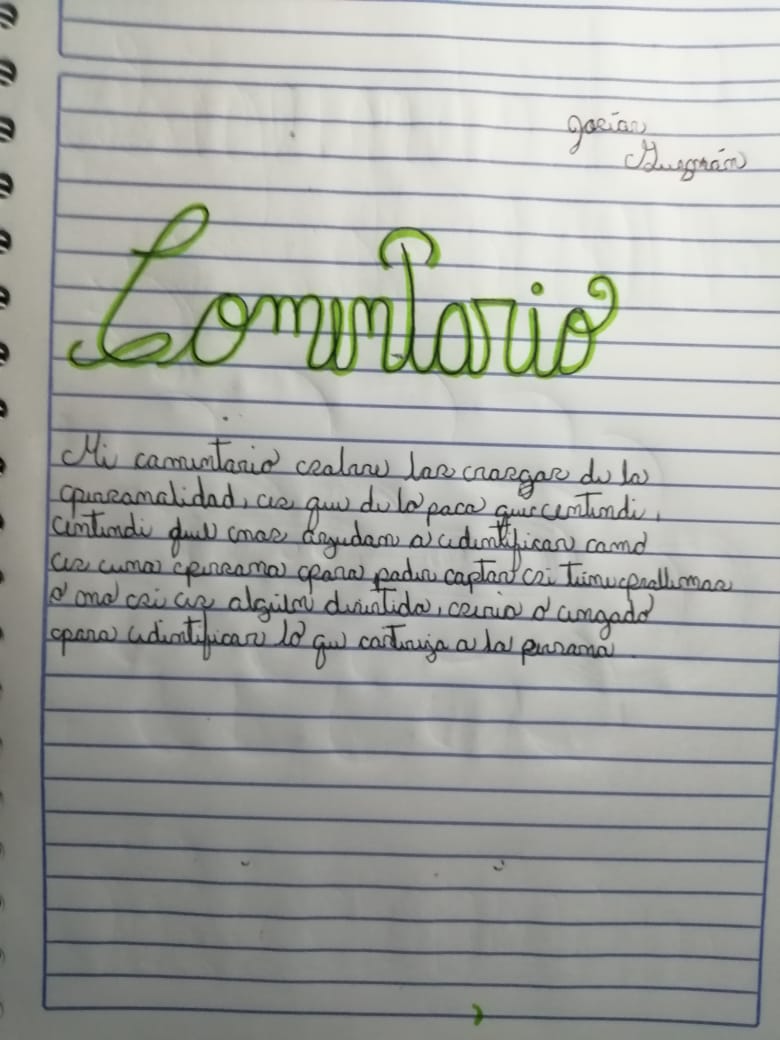 Josías
Guzmán
Comentario
Mi comentario sobre los rasgos de la
personalidad, es que de lo poco que entendi,
entendi que nos ayudam a identificar como
es una persona para poder captar si tiene problemas
o no si es alguien divertido, serio o enojado
para identificar lo que castiga a la persona.